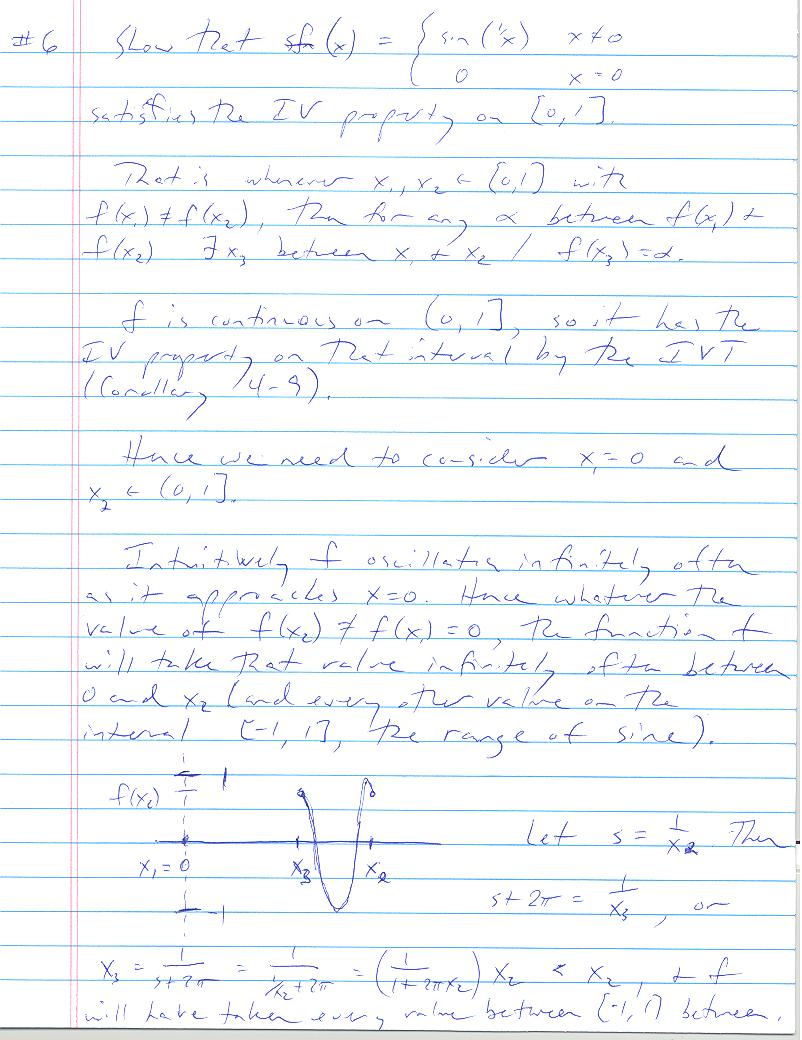 #6 Show that f(x) = { sin(1/x) x≠0
0 x=0
satisfies the IV property on [0,1].
That is whenever x₁, x₂ ∈ [0,1] with
f(x₁) ≠ f(x₂), then for any α between f(x₁) +
f(x₂) ∃ x₃ between x₁ + x₂ / f(x₃) = α.
f is continuous on (0,1], so it has the
IV property on that interval by the IVT
(Corollary 14-9).
Hence we need to consider x₁ = 0 and
x₂ ∈ (0,1].
Intuitively f oscillates infinitely often
as it approaches x=0. Hence whatever the
value of f(x₂) ≠ f(x₁) = 0, the function f
will take that value infinitely often between
0 and x₂ (and every other value on the
interval [-1,1], the range of sine).
1
f(x₂)
Let s = 1/x₂. Then
x₁ = 0 x₃ x₂
s+2π = 1/x₃, or
-1
x₃ = 1/(s+2π) = 1/(1/x₂+2π) = (1/(1+2πx₂)) x₂ < x₂, + f
will have taken every value between [-1,1] between.